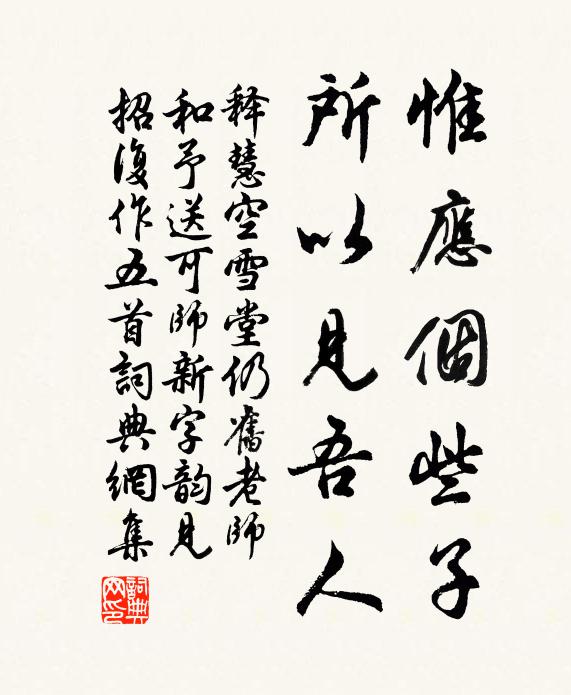 惟應個些子
所以見吾人
释慧空雪堂仍舊老師
和予送可師新字韵見
招復作五首詞典網集
詞典網印